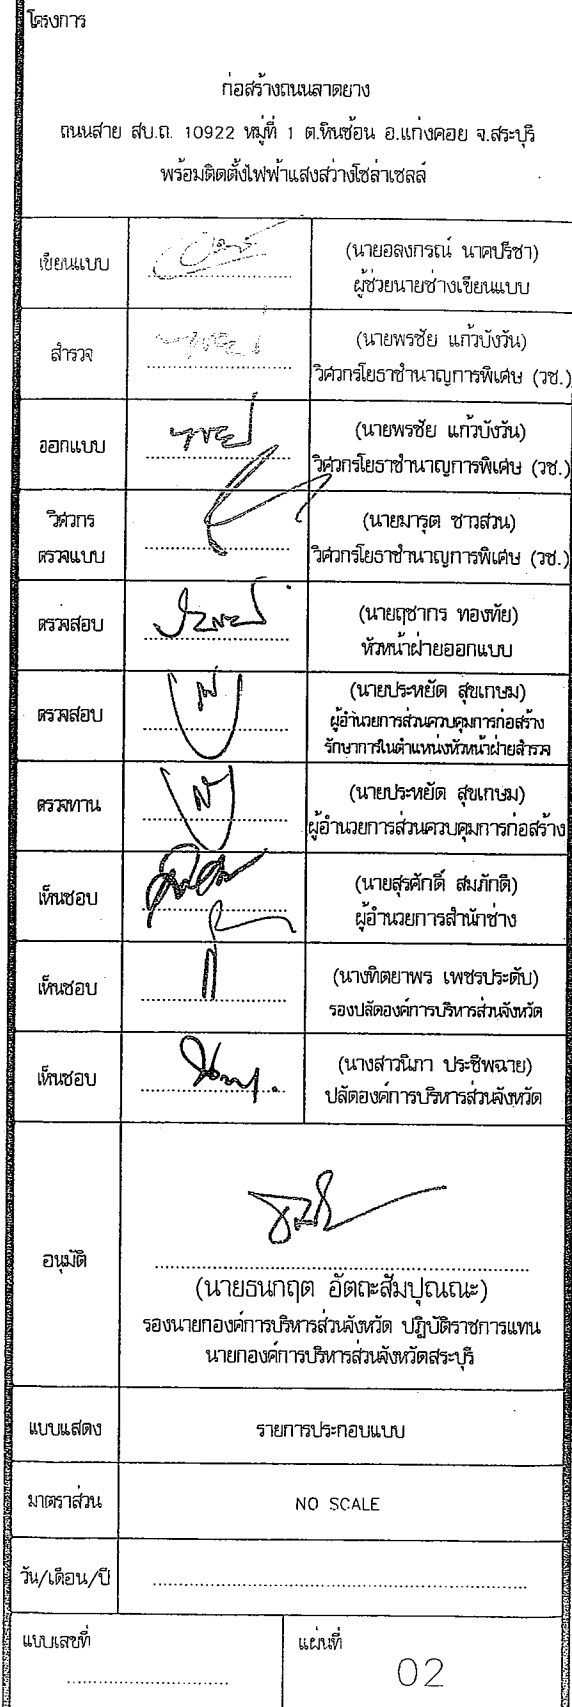 โครงการ
ก่อสร้างถนนลาดยาง
ถนนสาย สบ.ถ. 10922 หมู่ที่ 1 ต.หินซ้อน อ.แก่งคอย จ.สระบุรี
พร้อมติดตั้งไฟฟ้าแสงสว่างโซล่าเซลล์
เขียนแบบ
(นายอลงกรณ์ นาคปรีชา)
ผู้ช่วยนายช่างเขียนแบบ
สำรวจ
(นายพรชัย แก้วบังวัน)
วิศวกรโยธาชำนาญการพิเศษ (วช.)
ออกแบบ
(นายพรชัย แก้วบังวัน)
วิศวกรโยธาชำนาญการพิเศษ (วช.)
วิศวกร
ตรวจแบบ
(นายมารุต ชาวสวน)
วิศวกรโยธาชำนาญการพิเศษ (วช.)
ตรวจสอบ
(นายฤชากร ทองทัย)
หัวหน้าฝ่ายออกแบบ
ตรวจสอบ
(นายประหยัด สุขเกษม)
ผู้อำนวยการส่วนควบคุมการก่อสร้าง
รักษาการในตำแหน่งหัวหน้าฝ่ายสำรวจ
ตรวจทาน
(นายประหยัด สุขเกษม)
ผู้อำนวยการส่วนควบคุมการก่อสร้าง
เห็นชอบ
(นายสุรศักดิ์ สมภักดี)
ผู้อำนวยการสำนักช่าง
เห็นชอบ
(นางทิตยาพร เพชรประดับ)
รองปลัดองค์การบริหารส่วนจังหวัด
เห็นชอบ
(นางสาวนิภา ประชีพฉาย)
ปลัดองค์การบริหารส่วนจังหวัด
อนุมัติ
(นายธนกฤต อัตถะสัมปุณณะ)
รองนายกองค์การบริหารส่วนจังหวัด ปฏิบัติราชการแทน
นายกองค์การบริหารส่วนจังหวัดสระบุรี
แบบแสดง
รายการประกอบแบบ
มาตราส่วน
NO SCALE
วัน/เดือน/ปี
แบบเลขที่
แผ่นที่
02